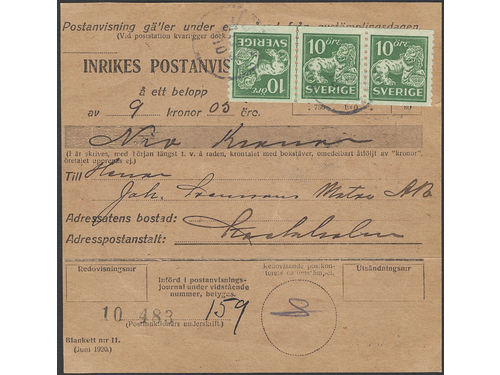 Postanvisning gä'ller under e
(Vid poststation kvarligger dock
INRIKES POSTANVIS
å ett belopp
av 9 kronor 05 öre.
Nio Kronor
(I ä skrives, med början längst t. v. å raden, krontalet med bokstäver, omedelbart åtföljt av "kronor"
Till Herrar
Joh. Svensons A.B.
Adressatens bostad:
Adresspostanstalt: Stockholm
SVERIGE 10 ÖRE
10 ÖRE SVERIGE
10 ÖRE SVERIGE
Redovisningsnr
Införd i postanvisnings-
journal under vidstående
nummer, betygas.
Redovisande postkon-
Utsändningsnr
10 483
159
(Posttjänstemans underskrift.)
Blankett n:r 11.
(Juni 1920.)